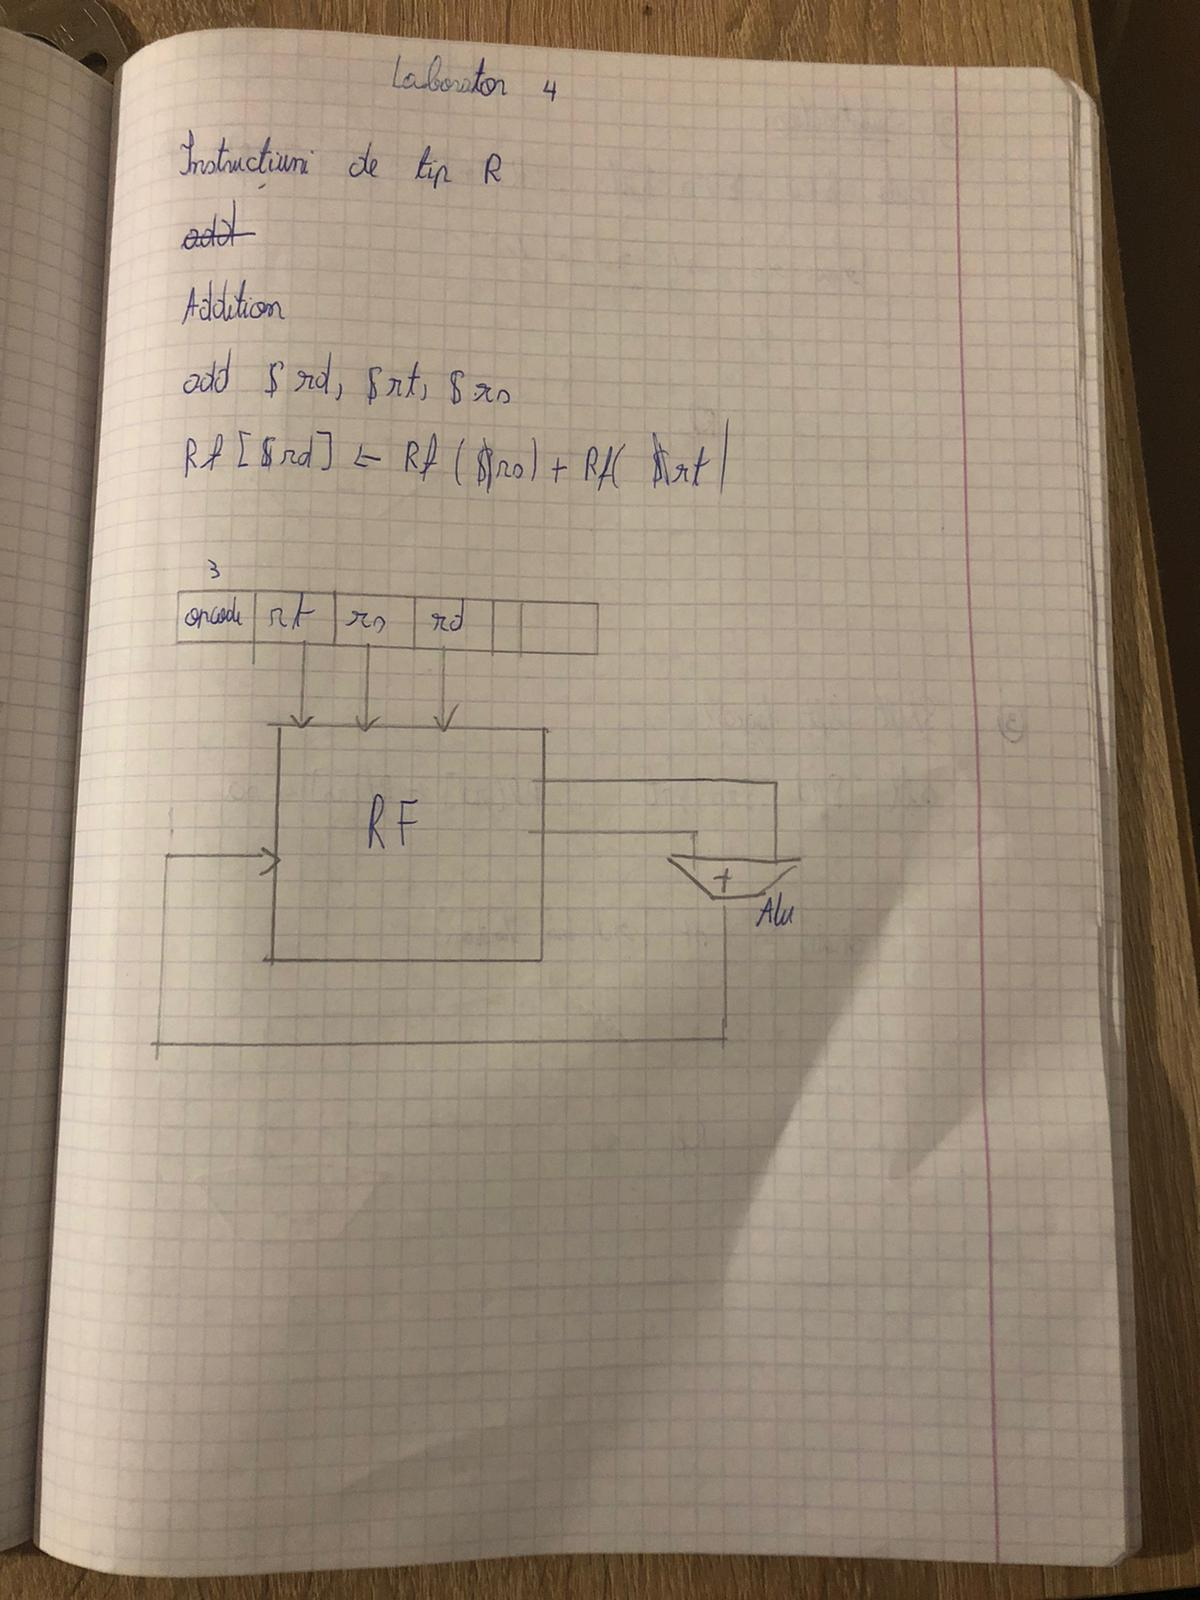 Laborator 4
Instrucțiuni de tip R
add
Addition
add $rd, $rt, $rs
Rf [$rd] ← Rf ($rs) + Rf( $rt |
3
opcode rt rs rd
RF
+
Alu